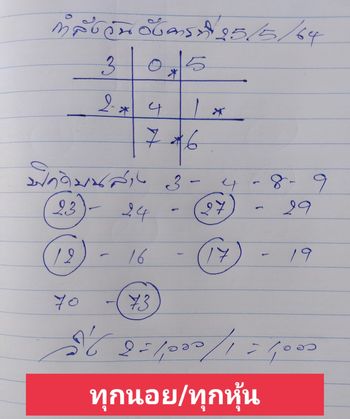 กำลังวันอังคารที่ 25/5/64
3 0 * 5
2 * 4 1 *
7 * 6
3 - 4 - 8 - 9
23 - 24 - 27 - 29
12 - 16 - 17 - 19
70 - 73
วิ่ง 2 = 1,000 / 1 = 1,000
ทุกนอย/ทุกหุ้น